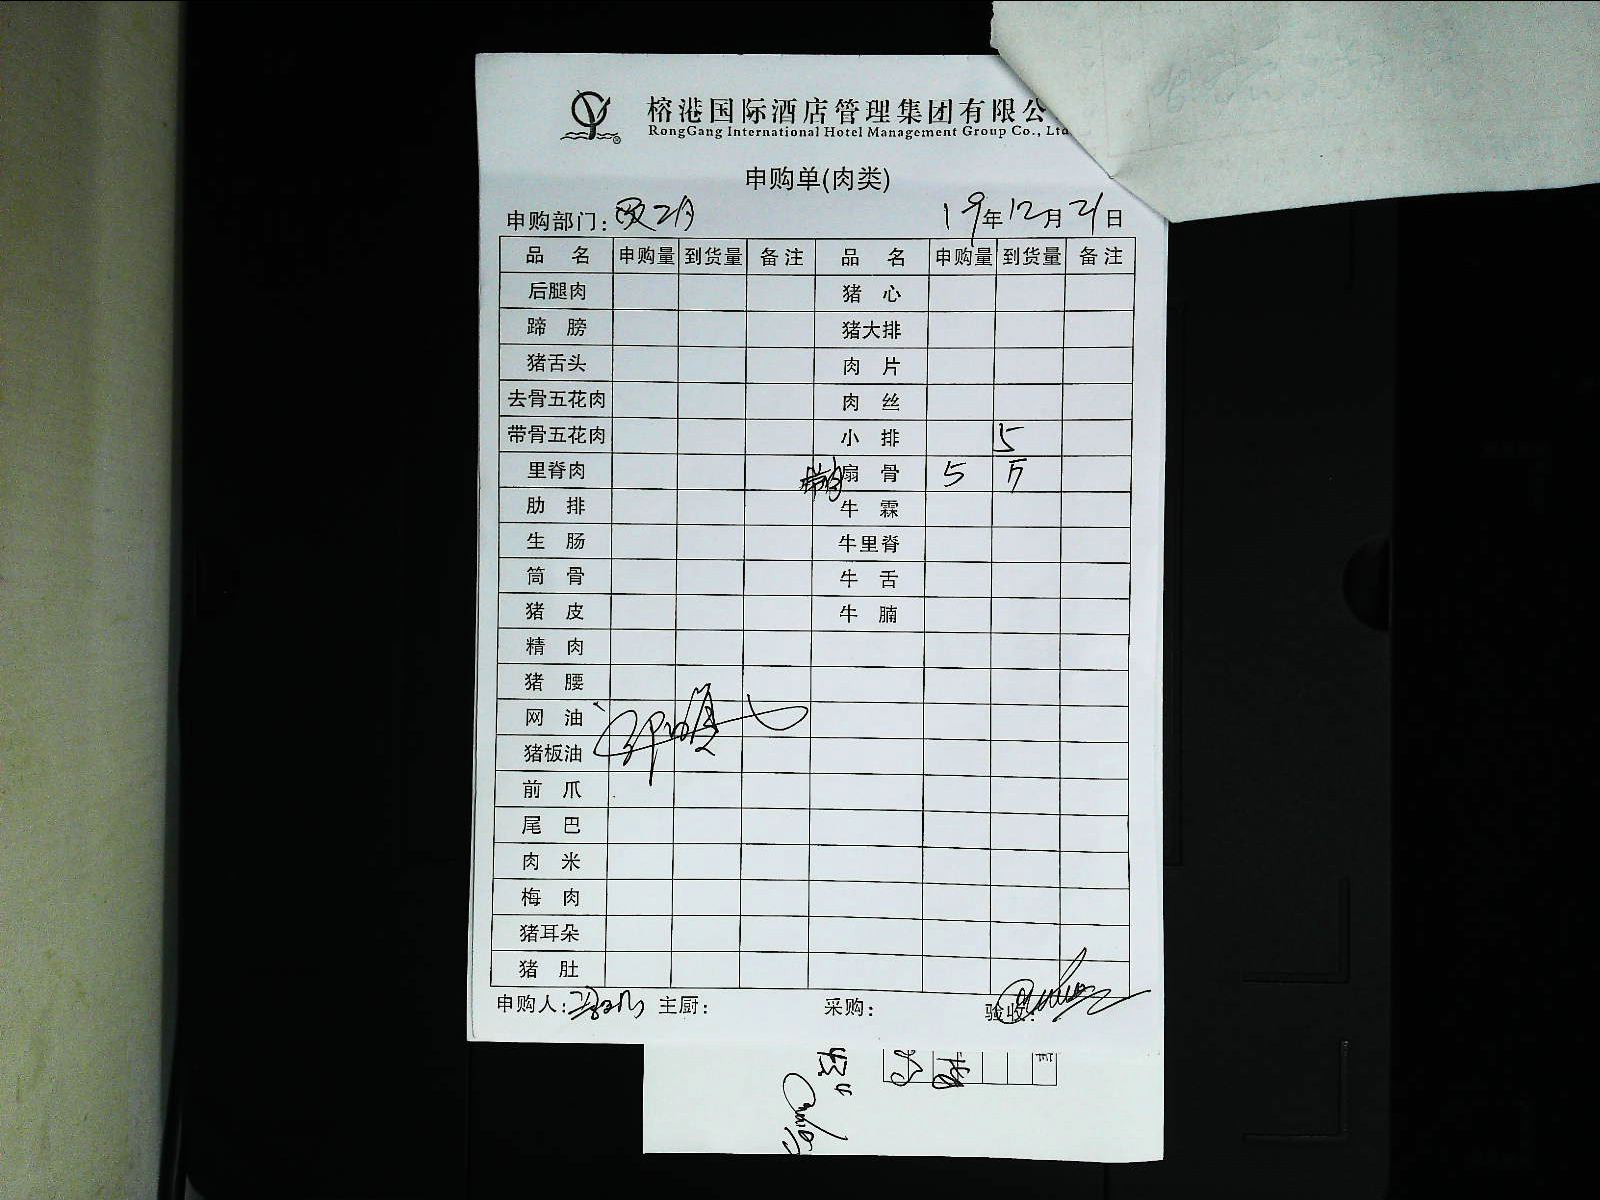 榕港国际酒店管理集团有限公
RongGang International Hotel Management Group Co., Ltd
申购单(肉类)
申购部门: 19年12月21日
品 名 申购量 到货量 备注 品 名 申购量 到货量 备注
后腿肉 猪 心
蹄 膀 猪大排
猪舌头 肉 片
去骨五花肉 肉 丝
带骨五花肉 小 排 5
里脊肉 扇 骨 5
肋 排 牛 霖
生 肠 牛里脊
筒 骨 牛 舌
猪 皮 牛 腩
精 肉
猪 腰
网 油
猪板油
前 爪
尾 巴
肉 米
梅 肉
猪耳朵
猪 肚
申购人: 主厨: 采购: 验收: